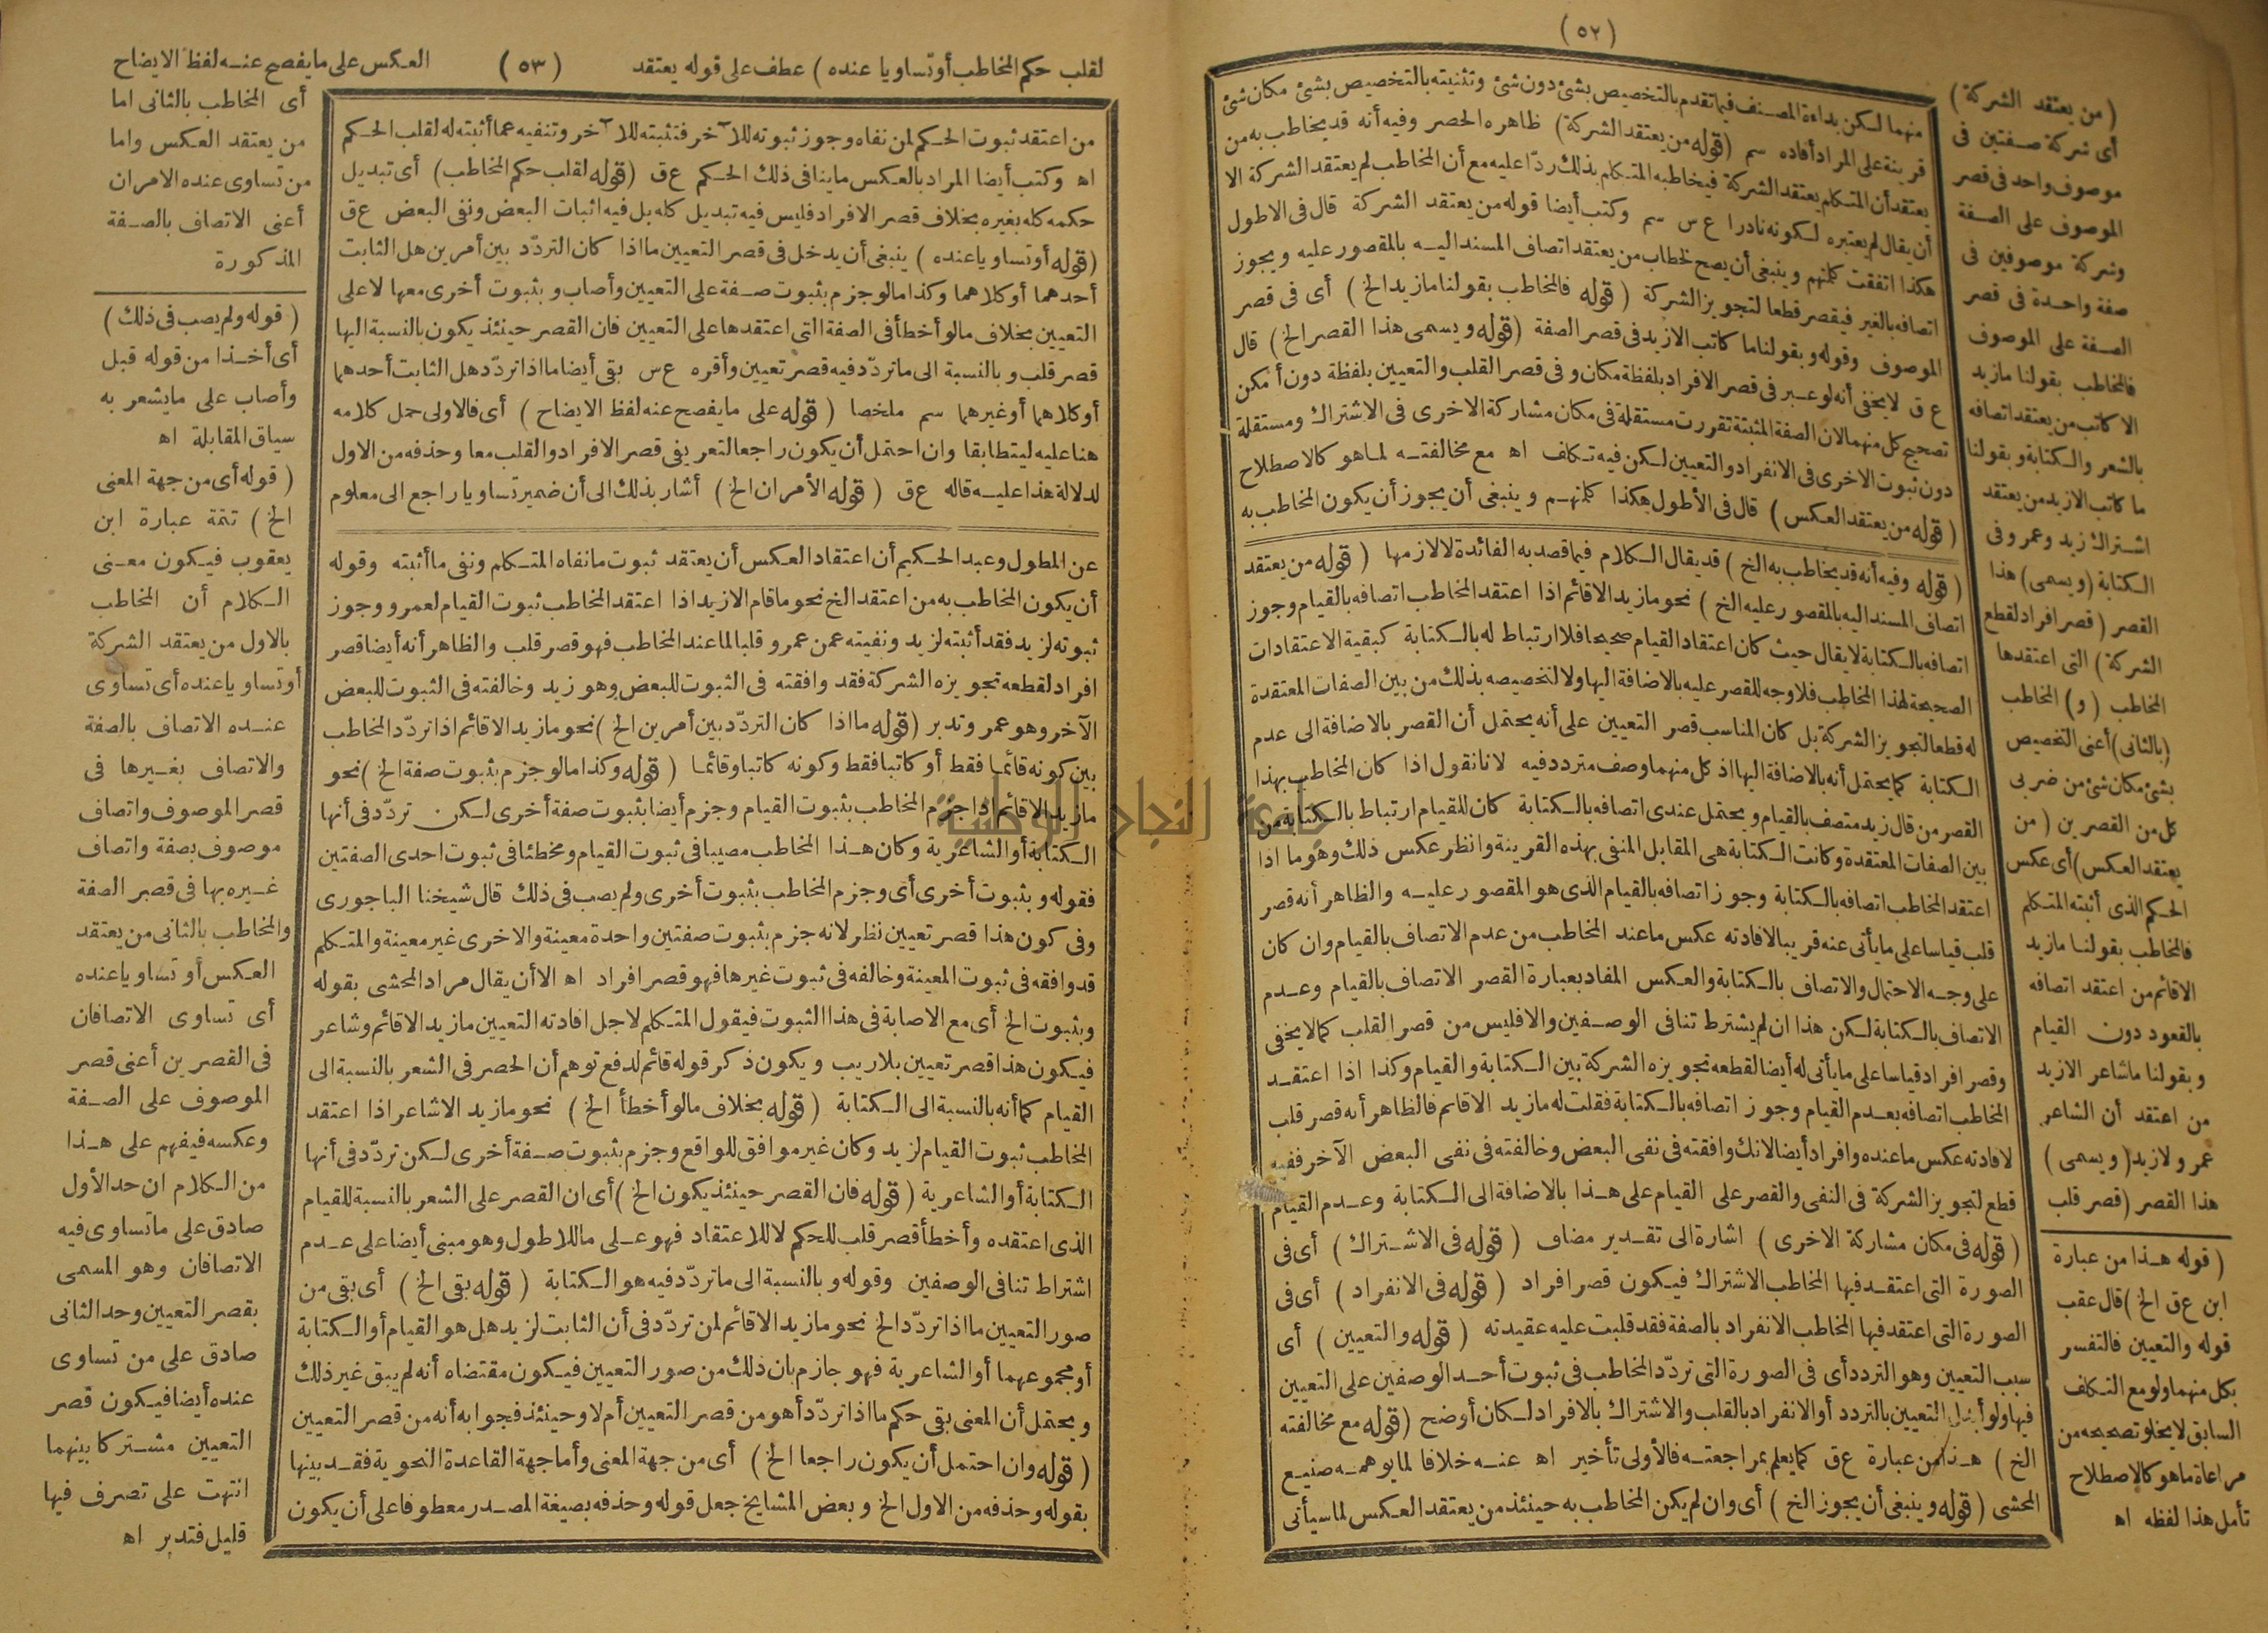 (٥٢)
(من يعتقد الشركة)
أى شركة صفتين فى
موصوف واحد فى قصر
الموصوف على الصفة
وشركة موصوفين فى
صفة واحدة فى قصر
الصفة على الموصوف
فالمخاطب بقولنا ما زيد
الا كاتب من يعتقد اتصافه
بالشعر والكتابة وبقولنا
ما كاتب الا زيد من يعتقد
اشتراك زيد وعمرو فى
الكتابة (ويسمى) هذا
القصر (قصر افراد لقطع
الشركة) التى اعتقدها
المخاطب (و) المخاطب
(بالثانى) أعنى التخصيص
بشئ مكان شئ من ضربى
كل من القصرين (من
يعتقد العكس) أى عكس
الحكم الذى أثبته المتكلم
فالمخاطب بقولنا ما زيد
الا قائم من اعتقد اتصافه
بالقعود دون القيام
وبقولنا ما شاعر الا زيد
من اعتقد أن الشاعر
عمرو لا زيد (ويسمى)
هذا القصر (قصر قلب
(قوله هذا من عبارة
ابن ع ق الخ) قال عقب
قوله والتعيين فالتفسر
بكل منهما ولو مع التكلف
السابق لا يخلو تصحيحه من
مراعاة ما هو كالاصطلاح
تأمل هذا لفظه اه
منهما لكن بداءة المصنف فيما تقدم بالتخصيص بشئ دون شئ وتثنيته بالتخصيص بشئ مكان شئ
قرينة على المراد أفاده سم (قوله من يعتقد الشركة) ظاهره الحصر وفيه أنه قد يخاطب به من
يعتقد أن المتكلم يعتقد الشركة فيخاطبه المتكلم بذلك ردّا عليه مع أن المخاطب لم يعتقد الشركة الا
أن يقال لم يعتبره لكونه نادرا ع س سم وكتب أيضا قوله من يعتقد الشركة قال فى الاطول
هكذا اتفقت كلمتهم وينبغى أن يصح لخطاب من يعتقد اتصاف المسند اليه بالمقصور عليه ويجوز
اتصافه بالغير فيقصر قطعا لتجويز الشركة (قوله فالمخاطب بقولنا ما زيد الخ) أى فى قصر
الموصوف وقوله وبقولنا ما كاتب الا زيد فى قصر الصفة (قوله ويسمى هذا القصر الخ) قال
ع ق لا يخفى أنه لو عبر فى قصر الافراد بلفظة مكان وفى قصر القلب والتعيين بلفظة دون أمكن
تصحيح كل منهما لان الصفة المثبتة تقررت مستقلة فى مكان مشاركة الاخرى فى الاشتراك ومستقلة
دون ثبوت الاخرى فى الانفراد والتعيين لكن فيه تكلف اه مع مخالفته لما هو كالاصطلاح
(قوله من يعتقد العكس) قال فى الأطول هكذا كلمتهم وينبغى أن يجوز أن يكون المخاطب به
(قوله وفيه أنه قد يخاطب به الخ) قد يقال الكلام فيما قصد به الفائدة لا لازمها (قوله من يعتقد
اتصاف المسند اليه بالمقصور عليه الخ) نحو ما زيد الا قائم اذا اعتقد المخاطب اتصافه بالقيام وجوز
اتصافه بالكتابة لا يقال حيث كان اعتقاد القيام صحيحا فلا ارتباط له بالكتابة كبقية الاعتقادات
الصحيحة لهذا المخاطب فلا وجه للقصر عليه بالاضافة اليها ولا لتخصيصه بذلك من بين الصفات المعتقدة
له قطعا لتجويز الشركة بل كان المناسب قصر التعيين على أنه يحتمل أن القصر بالاضافة الى عدم
الكتابة كما يحتمل أنه بالاضافة اليها اذ كل منهما وصف متردد فيه لانا نقول اذا كان المخاطب بهذا
القصر من قال زيد متصف بالقيام ويحتمل عندى اتصافه بالكتابة كان للقيام ارتباط بالكتابة من
بين الصفات المعتقدة وكانت الكتابة هى المقابل المنفى بهذه القرينة وانظر عكس ذلك وهو ما اذا
اعتقد المخاطب اتصافه بالكتابة وجوز اتصافه بالقيام الذى هو المقصور عليه والظاهر أنه قصر
قلب قياسا على ما يأتى عنه قريبا لافادته عكس ما عند المخاطب من عدم الاتصاف بالقيام وان كان
على وجه الاحتمال والاتصاف بالكتابة والعكس المفاد بعبارة القصر الاتصاف بالقيام وعدم
الاتصاف بالكتابة لكن هذا ان لم يشترط تنافى الوصفين والا فليس من قصر القلب كما لا يخفى
وقصر افراد قياسا على ما يأتى له أيضا لقطعه تجويزه الشركة بين الكتابة والقيام وكذا اذا اعتقد
المخاطب اتصافه بعدم القيام وجوز اتصافه بالكتابة فقلت له ما زيد الا قائم فالظاهر أنه قصر قلب
لافادته عكس ما عنده وافراد أيضا لانك وافقته فى نفى البعض وخالفته فى نفى البعض الآخر ففيه
قطع لتجويز الشركة فى النفى والقصر على القيام على هذا بالاضافة الى الكتابة وعدم القيام
(قوله فى مكان مشاركة الاخرى) اشارة الى تقدير مضاف (قوله فى الاشتراك) أى فى
الصورة التى اعتقد فيها المخاطب الاشتراك فيكون قصر افراد (قوله فى الانفراد) أى فى
الصورة التى اعتقد فيها المخاطب الانفراد بالصفة فقد قلبت عليه عقيدته (قوله والتعيين) أى
سبب التعيين وهو التردد أى فى الصورة التى تردّد المخاطب فى ثبوت أحد الوصفين على التعيين
فيها ولو أبدل التعيين بالتردد أو الانفراد بالقلب والاشتراك بالافراد لكان أوضح (قوله مع مخالفته
الخ) هذا من عبارة ع ق كما يعلم بمراجعته فالأولى تأخير اه عنه خلافا لما يوهمه صنيع
المحشى (قوله وينبغى أن يجوز الخ) أى وان لم يكن المخاطب به حينئذ من يعتقد العكس لما سيأتى
(٥٣)
لقلب حكم المخاطب أو تساويا عنده) عطف على قوله يعتقد
العكس على ما يفصح عنه لفظ الايضاح
أى المخاطب بالثانى اما
من يعتقد العكس واما
من تساوى عنده الامران
أعنى الاتصاف بالصفة
المذكورة
(قوله ولم يصب فى ذلك)
أى أخذا من قوله قبل
وأصاب على ما يشعر به
سياق المقابلة اه
(قوله أى من جهة المعنى
الخ) تتمة عبارة ابن
يعقوب فيكون معنى
الكلام أن المخاطب
بالاول من يعتقد الشركة
أو تساويا عنده أى تساوى
عنده الاتصاف بالصفة
والاتصاف بغيرها فى
قصر الموصوف واتصاف
موصوف بصفة واتصاف
غيره بها فى قصر الصفة
والمخاطب بالثانى من يعتقد
العكس أو تساويا عنده
أى تساوى الاتصافان
فى القصرين أعنى قصر
الموصوف على الصفة
وعكسه فيفهم على هذا
من الكلام ان حد الأول
صادق على ما تساوى فيه
الاتصافان وهو المسمى
بقصر التعيين وحد الثانى
صادق على من تساوى
عنده أيضا فيكون قصر
التعيين مشتركا بينهما
انتهت على تصرف فيها
قليل فتدبر اه
من اعتقد ثبوت الحكم لمن نفاه وجوز ثبوته للآخر فتثبته للآخر وتنفيه عما أثبته له لقلب الحكم
اه وكتب أيضا المراد بالعكس ما ينافى ذلك الحكم ع ق (قوله لقلب حكم المخاطب) أى تبديل
حكمه كله بغيره بخلاف قصر الافراد فليس فيه تبديل كله بل فيه اثبات البعض ونفى البعض ع ق
(قوله أو تساويا عنده) ينبغى أن يدخل فى قصر التعيين ما اذا كان التردّد بين أمرين هل الثابت
أحدهما أو كلاهما وكذا ما لو جزم بثبوت صفة على التعيين وأصاب وبثبوت أخرى معها لا على
التعيين بخلاف ما لو أخطأ فى الصفة التى اعتقدها على التعيين فان القصر حينئذ يكون بالنسبة اليها
قصر قلب وبالنسبة الى ما تردّد فيه قصر تعيين وأقره ع س بقى أيضا ما اذا تردّد هل الثابت أحدهما
أو كلاهما أو غيرهما سم ملخصا (قوله على ما يفصح عنه لفظ الايضاح) أى فالاولى حمل كلامه
هنا عليه ليتطابقا وان احتمل أن يكون راجعا لتعريفى قصر الافراد والقلب معا وحذفه من الاول
لدلالة هذا عليه قاله ع ق (قوله الأمران الخ) أشار بذلك الى أن ضمير تساويا راجع الى معلوم
عن المطول وعبد الحكيم أن اعتقاد العكس أن يعتقد ثبوت ما نفاه المتكلم ونفى ما أثبته وقوله
أن يكون المخاطب به من اعتقد الخ نحو ما قام الا زيد اذا اعتقد المخاطب ثبوت القيام لعمرو وجوز
ثبوته لزيد فقد أثبته لزيد ونفيته عمن عمرو قلبا لما عند المخاطب فهو قصر قلب والظاهر أنه أيضا قصر
افراد لقطعه تجويزه الشركة فقد وافقته فى الثبوت للبعض وهو زيد وخالفته فى الثبوت للبعض
الآخر وهو عمرو تدبر (قوله ما اذا كان التردّد بين أمرين الخ) نحو ما زيد الا قائم اذا تردّد المخاطب
بين كونه قائما فقط أو كاتبا فقط وكونه كاتبا وقائما (قوله وكذا ما لو جزم بثبوت صفة الخ) نحو
ما زيد الا قائم اذا جزم المخاطب بثبوت القيام وجزم أيضا بثبوت صفة أخرى لكن تردّد فى أنها
الكتابة أو الشاعرية وكان هذا المخاطب مصيبا فى ثبوت القيام ومخطئا فى ثبوت احدى الصفتين
فقوله وبثبوت أخرى أى وجزم المخاطب بثبوت أخرى ولم يصب فى ذلك قال شيخنا الباجورى
وفى كون هذا قصر تعيين نظر لانه جزم بثبوت صفتين واحدة معينة والاخرى غير معينة والمتكلم
قد وافقه فى ثبوت المعينة وخالفه فى ثبوت غيرها فهو قصر افراد اه الا أن يقال مراد المحشى بقوله
وبثبوت الخ أى مع الاصابة فى هذا الثبوت فيقول المتكلم لاجل افادته التعيين ما زيد الا قائم وشاعر
فيكون هذا قصر تعيين بلا ريب ويكون ذكر قوله قائم لدفع توهم أن الحصر فى الشعر بالنسبة الى
القيام كما أنه بالنسبة الى الكتابة (قوله بخلاف ما لو أخطأ الخ) نحو ما زيد الا شاعر اذا اعتقد
المخاطب ثبوت القيام لزيد وكان غير موافق للواقع وجزم بثبوت صفة أخرى لكن تردّد فى أنها
الكتابة أو الشاعرية (قوله فان القصر حينئذ يكون الخ) أى ان القصر على الشعر بالنسبة للقيام
الذى اعتقده وأخطأ قصر قلب للحكم لا للاعتقاد فهو على ما للاطول وهو مبنى أيضا على عدم
اشتراط تنافى الوصفين وقوله وبالنسبة الى ما تردّد فيه هو الكتابة (قوله بقى الخ) أى بقى من
صور التعيين ما اذا تردّد الخ نحو ما زيد الا قائم لمن تردّد فى أن الثابت لزيد هل هو القيام أو الكتابة
أو مجموعهما أو الشاعرية فهو جازم بان ذلك من صور التعيين فيكون مقتضاه أنه لم يبق غير ذلك
ويحتمل أن المعنى بقى حكم ما اذا تردّد أهو من قصر التعيين أم لا وحينئذ فجوابه أنه من قصر التعيين
(قوله وان احتمل أن يكون راجعا الخ) أى من جهة المعنى وأما جهة القاعدة النحوية فقد بينها
بقوله وحذفه من الاول الخ وبعض المشايخ جعل قوله وحذفه بصيغة المصدر معطوفا على أن يكون
جامعة النجاح الوطنية